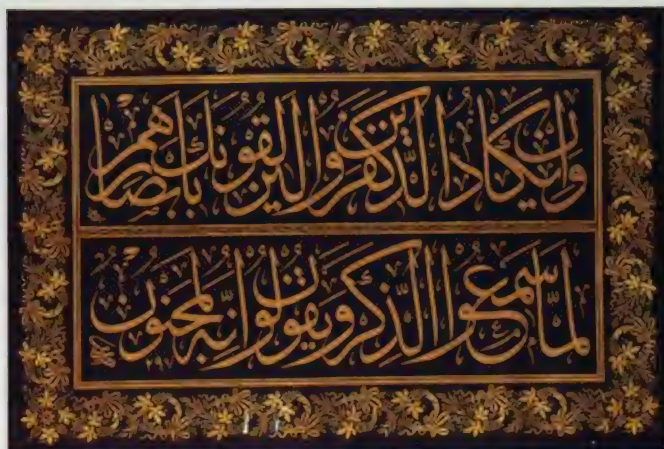 وَإِن يَكَادُ الَّذِينَ كَفَرُوا لَيُزْلِقُونَكَ بِأَبْصَارِهِمْ
لَمَّا سَمِعُوا الذِّكْرَ وَيَقُولُونَ إِنَّهُ لَمَجْنُونٌ